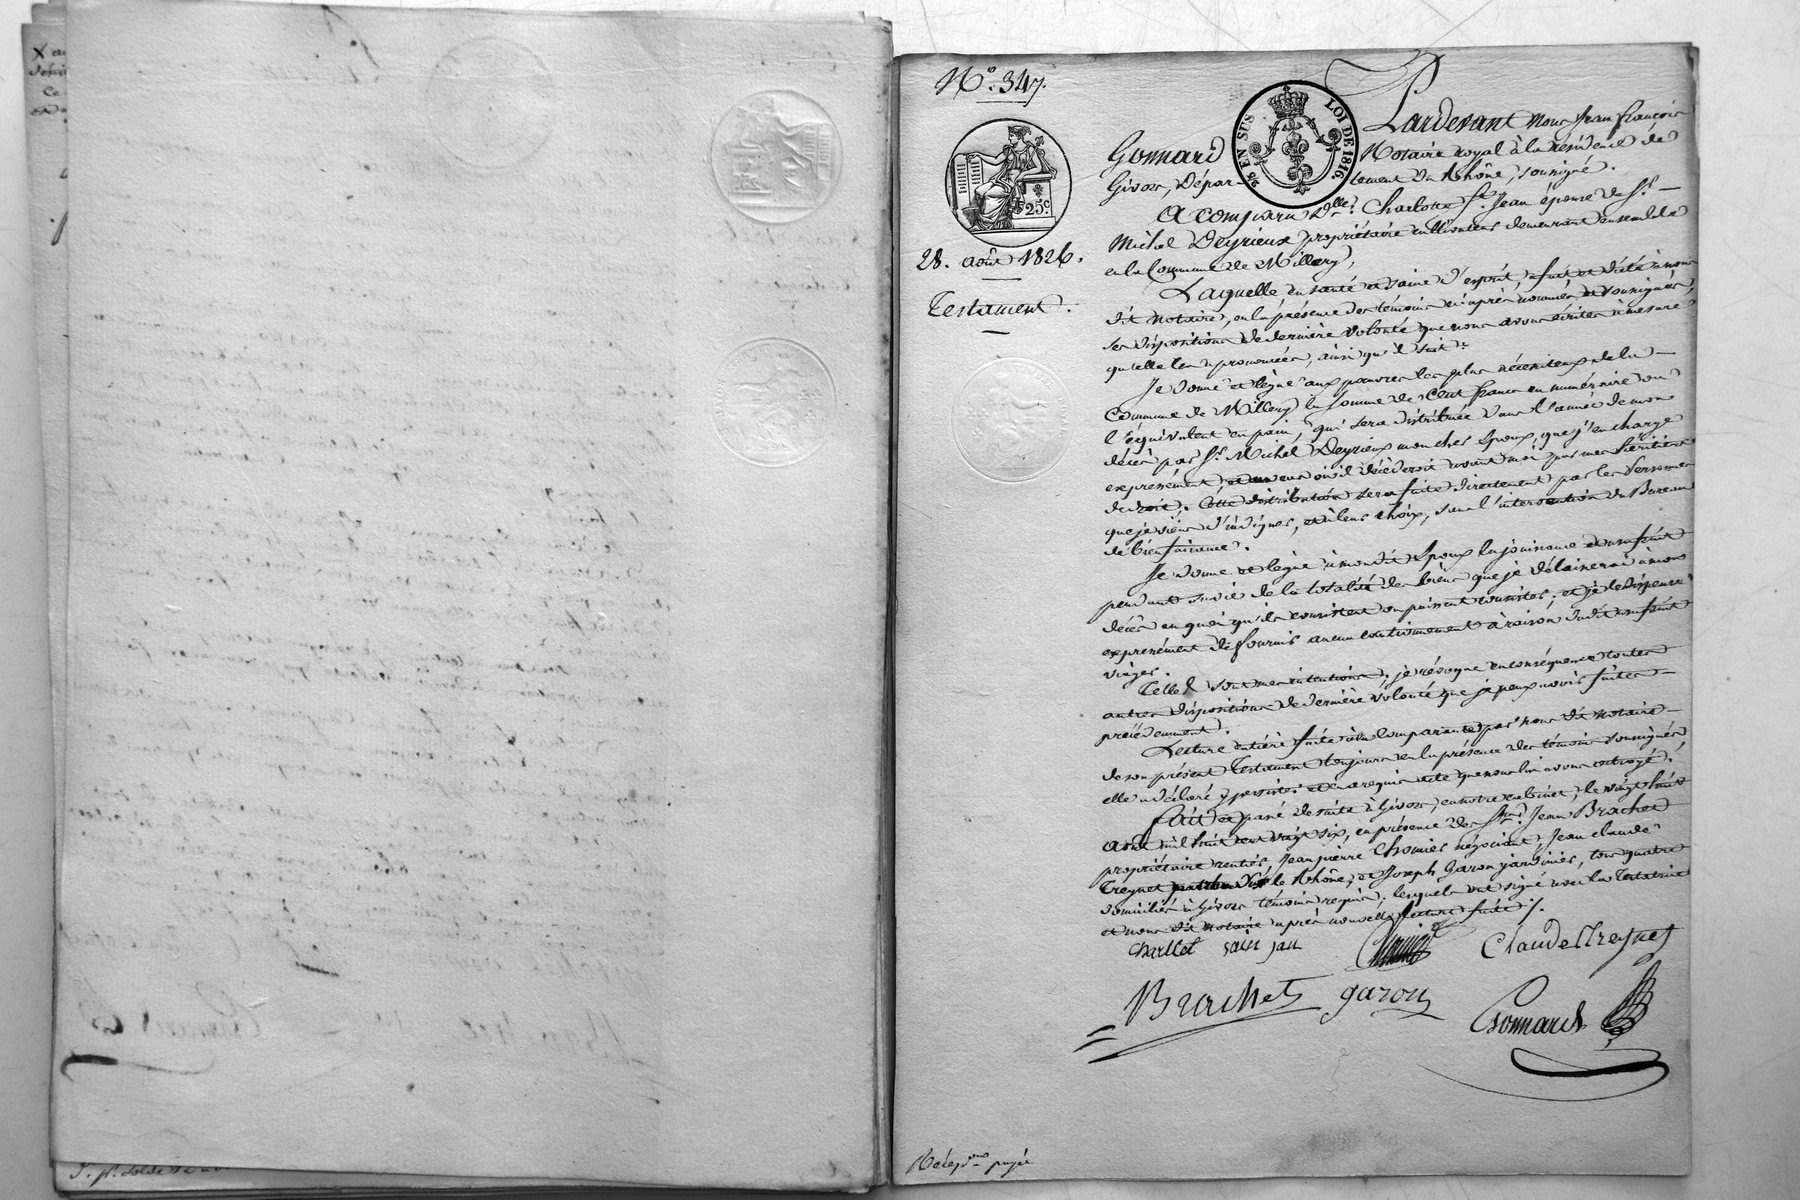 N.° 347.
25 EN SUS
LOI DE 1816.
25.c
28. août 1826.
Testament.
Pardevant Nous Jean françois
Gonnard Notaire royal à la résidence de
Givors, Dépar-tement du Rhône, soussigné.
A comparu D.lle Charlotte S.t Jean épouse du S.r
Michel Deyrieux propriétaire cultivateur demeurant ensemble
en la Commune de Millery,
Laquelle en santé et saine d'esprit, a fait et dicté à nous
dit Notaire, en la présence des témoins ci-après nommés et soussignés,
ses dispositions de dernière volonté que nous avons écrites à mesure
qu'elle les a prononcées, ainsi qu'il suit:
Je donne et lègue aux pauvres les plus nécessiteux de la
Commune de Millery la somme de Cent francs en numéraire ou
l'équivalent en pain, qui sera distribuée dans l'année de mon
décès par S.r Michel Deyrieux mon cher Epoux, que j'en charge
expressément, et au cas où il décéderoit avant moi par mes héritiers
de droit. Cette distribution sera faite directement par les personnes
que je viens d'indiquer, et à leur choix, sans l'intervention du Bureau
de bienfaisance.
Je donne et lègue à mon dit Epoux la jouissance et usufruit
pendant sa vie de la totalité des biens que je délaisserai à mon
décès en quoi qu'ils consistent ou puissent consister; et je le dispense
expressément de fournir aucun cautionnement à raison dudit usufruit
viager.
Telles sont mes intentions; je révoque en conséquence toutes
autres dispositions de dernière volonté que je peux avoir faites
précédemment.
Lecture entière faite à la Comparante par nous dit Notaire
de son présent Testament toujours en la présence des témoins soussignés,
elle a déclaré y persister et en a requis acte que nous lui avons octroyé.
Fait et passé de suite à Givors, en notre cabinet, le vingt huit
août mil huit cent vingt six, en présence de S.rs Jean Brachet
propriétaire rentier, Jean pierre Chomier négociant, Jean claude
Treynet patron sur le Rhône, et Joseph Garon jardinier, tous quatre
domiciliés à Givors témoins requis, lesquels ont signé avec la Testatrice
et nous dit Notaire après nouvelle lecture faite./.
Charllot sain jan
Claude Treynet
Brachet garon
Gonnard